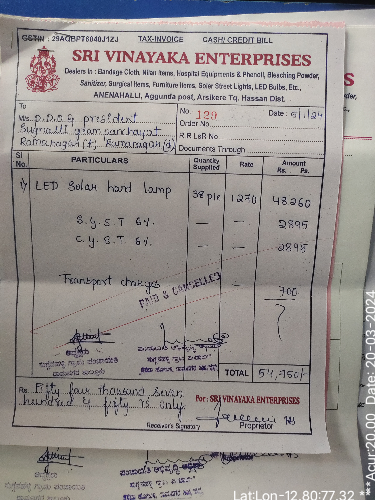 GSTIN : 29AGBPT6040J1ZJ TAX-INVOICE CASH/ CREDIT BILL
SRI VINAYAKA ENTERPRISES
Dealers in : Bandage Cloth, Nilan Items, Hospital Equipments & Phenoil, Bleaching Powder,
Sanitizer, Surgical Items, Furniture Items, Solar Street Lights, LED Bulbs, Etc.,
ANENAHALLI, Aggunda post, Arsikere Tq. Hassan Dist.
To
M/s P.D.O & president
No. 129 Date: 5/1/24
Order No.
R R LsR No.
Documents Through
Sl No. PARTICULARS Quantity Supplied Rate Amount Rs. Ps.
1) LED Solar hand lamp 38 pic 1270 48260
S.G.S.T 6% — — 2895
C.G.S.T 6% — — 2895
Transport charges — 700
PAID & CANCELLED
TOTAL 54,750/-
Rs. Fifty four thousand seven
hundred & fifty Rs only.
For: SRI VINAYAKA ENTERPRISES
Receiver's Signatory Proprietor
Lat:Lon-12.80:77.32
***Acur:20.00 Date: 20-03-2024